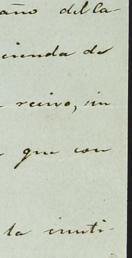 año del Ca
cienda de
recivo, sin
que con
la inuti